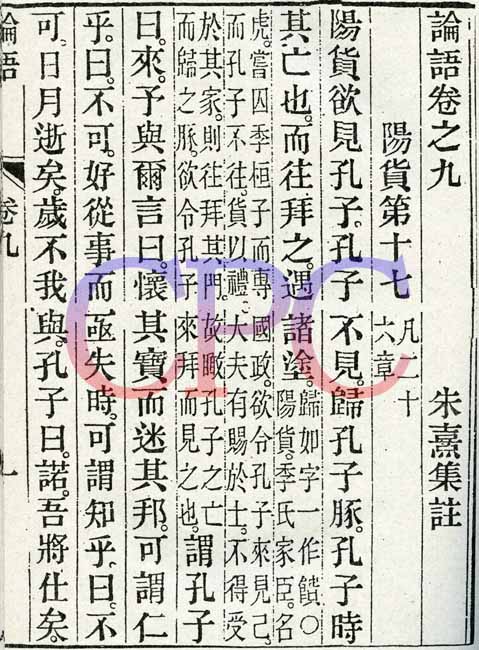 論語卷之九 朱熹集註
陽貨第十七
凡二十
六章
陽貨欲見孔子。孔子不見。歸孔子豚。孔子時
其亡也。而往拜之。遇諸塗。
歸如字一作饋○
陽貨。季氏家臣。名
虎。嘗囚季桓子而專國政。欲令孔子來見己。
而孔子不往。貨以禮。大夫有賜於士。不得受
於其家。則往拜其門。故瞰孔子之亡
而歸之豚。欲令孔子來拜而見之也。
謂孔子
曰。來。予與爾言。曰。懷其寶。而迷其邦。可謂仁
乎。曰。不可。好從事而亟失時。可謂知乎。曰。不
可。日月逝矣。歲不我與。孔子曰。諾。吾將仕矣。
論語 卷九 一
CPC